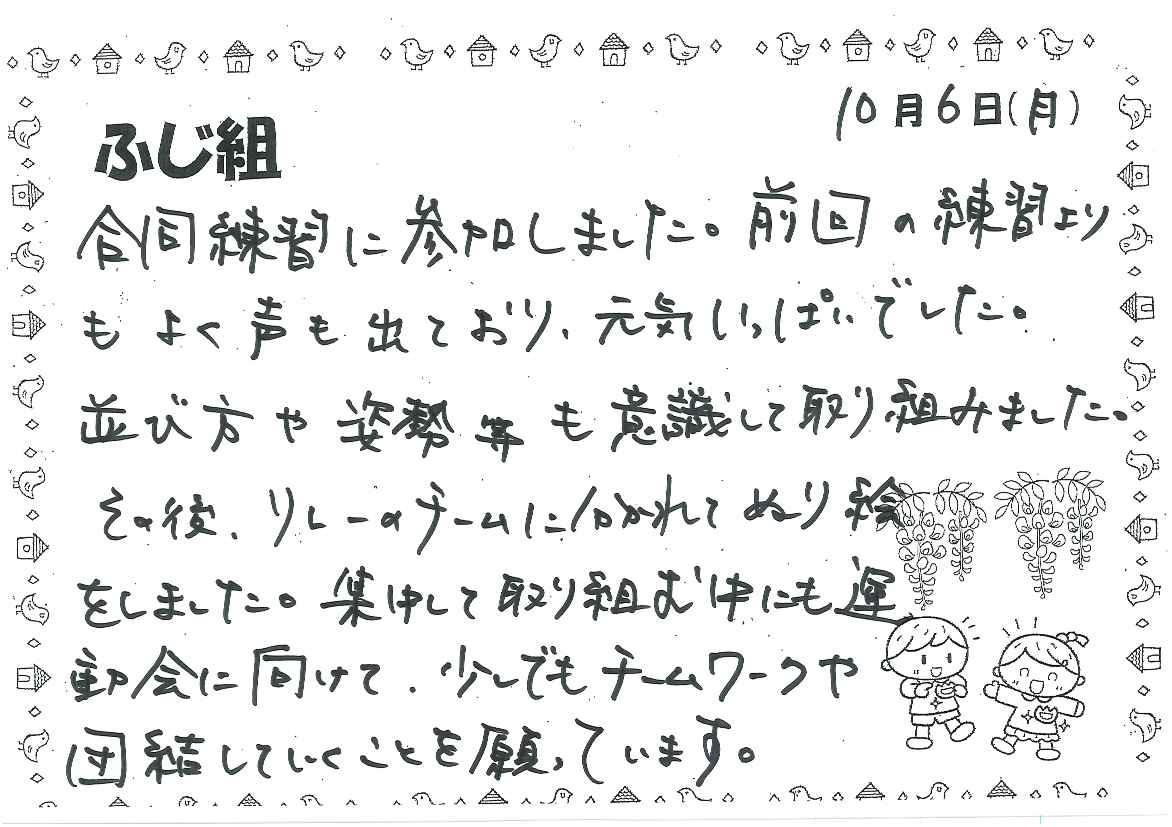 10月6日(月)
ふじ組
合同練習に参加しました。前回の練習より
もよく声も出ており、元気いっぱいでした。
並び方や姿勢等も意識して取り組みました。
その後、リレーのチームに分かれてぬり絵
をしました。集中して取り組む中にも運
動会に向けて、少しでもチームワークや
団結していくことを願っています。